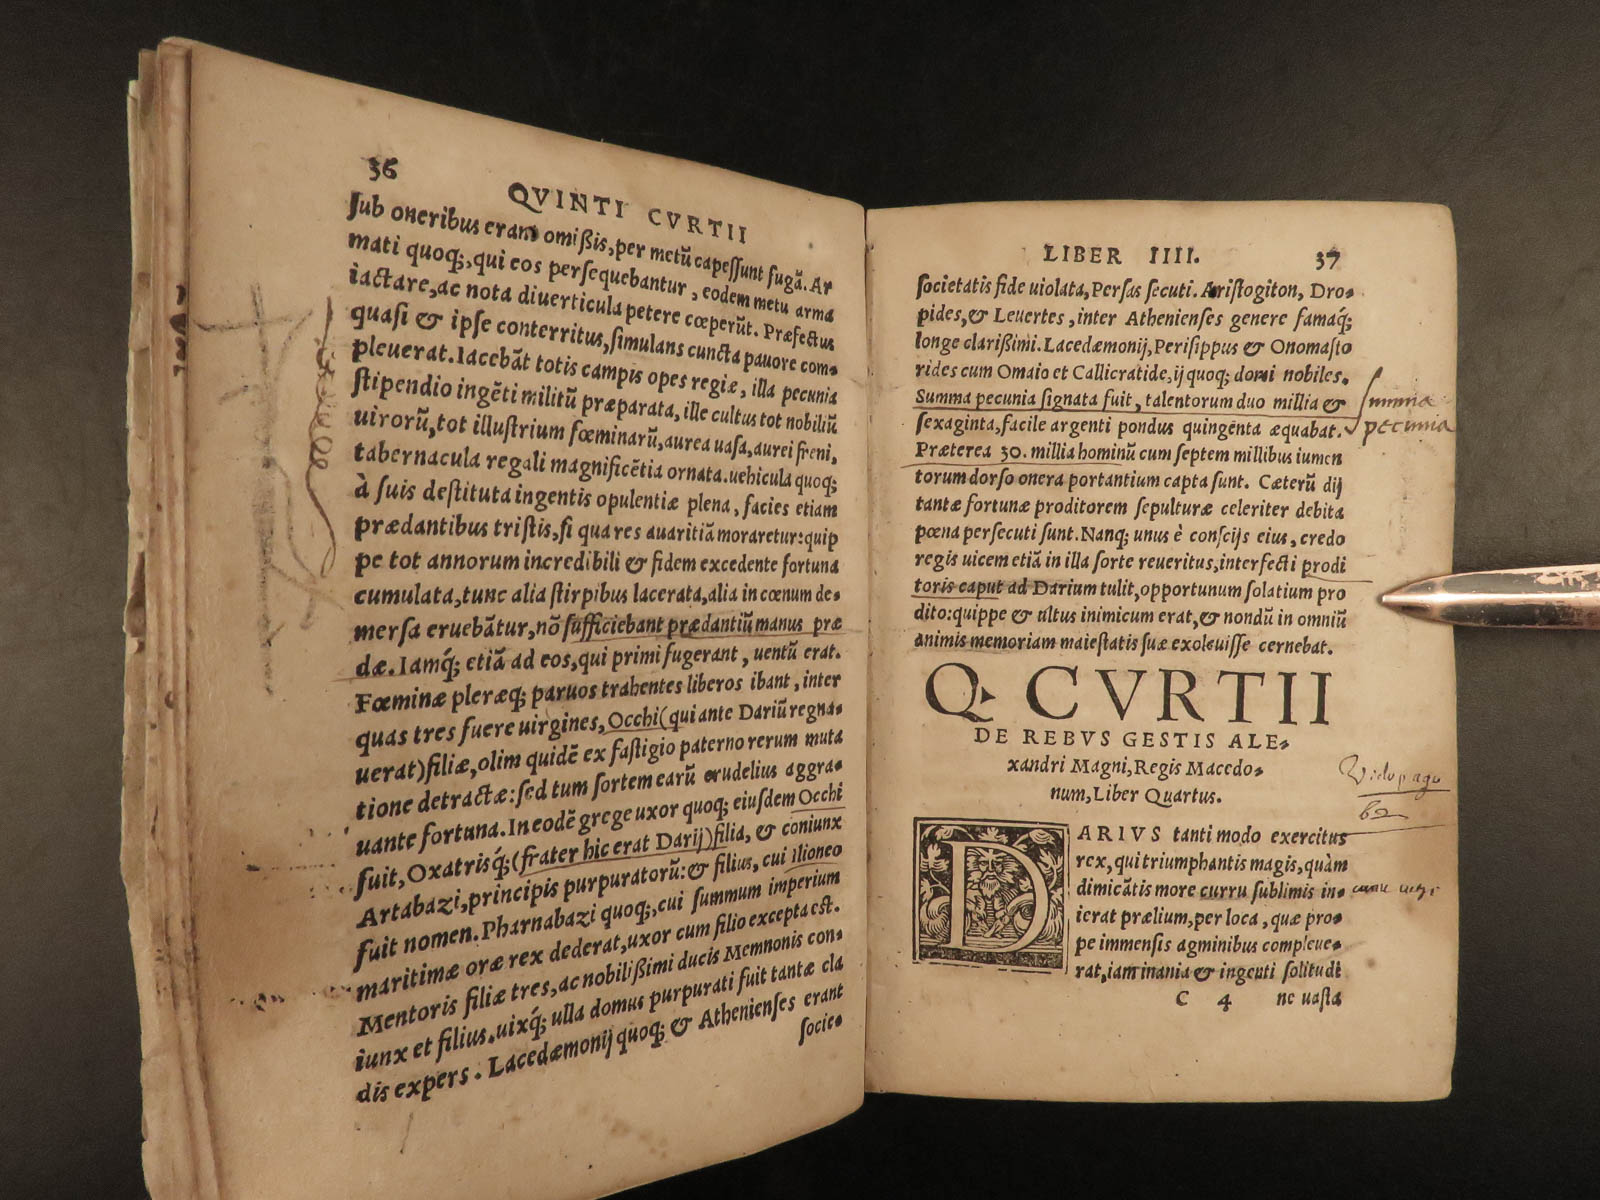 36
QVINTI CVRTII
ſub oneribus erant omißis, per metũ capeſſunt fugã. Ar
mati quoq;, qui eos perſequebantur, eodem metu arma
iactare, ac nota diuerticula petere cœperũt. Præfectus
quaſi & ipſe conterritus, ſimulans cuncta pauore com-
pleuerat. Iacebãt totis campis opes regiæ, illa pecunia
ſtipendio ingẽti militũ præparata, ille cultus tot nobiliũ
uirorũ, tot illuſtrium fœminarũ, aurea uaſa, aurei freni,
tabernacula regali magnificẽtia ornata. uehicula quoq;
à ſuis deſtituta ingentis opulentiæ plena, facies etiam
prædantibus triſtis, ſi qua res auaritiã moraretur: quip
pe tot annorum incredibili & fidem excedente fortuna
cumulata, tunc alia ſtirpibus lacerata, alia in cœnum de-
merſa eruebãtur, nõ ſufficiebant prædantiũ manus præ
dæ. Iamq́; etiã ad eos, qui primi fugerant, uentũ erat.
Fœminæ pleræq; paruos trahentes liberos ibant, inter
quas tres fuere uirgines, Occhi (qui ante Dariũ regna-
uerat) filiæ, olim quidẽ ex faſtigio paterno rerum muta
tione detractæ: ſed tum ſortem earũ crudelius aggra-
uante fortuna. In eodẽ grege uxor quoq; eiuſdem Occhi
fuit, Oxatrisq́; (frater hic erat Darij) filia, & coniunx
Artabazi, principis purpuratorũ: & filius, cui ilioneo
fuit nomen. Pharnabazi quoq;, cui ſummum imperium
maritimæ oræ rex dederat, uxor cum filio excepta eſt.
Mentoris filiæ tres, ac nobilißimi ducis Memnonis con-
iunx et filius. uixq́; ulla domus purpurati fuit tantæ cla
dis expers. Lacedæmonij quoq; & Athenienſes erant
ſocie-
LIBER IIII.
37
ſocietatis fide uiolata, Perſas ſecuti. Ariſtogiton, Dro-
pides, & Leuertes, inter Athenienſes genere famaq́;
longe clarißimi. Lacedæmonij, Periſippus & Onomaſto
rides cum Omaio et Callicratide, ij quoq; domi nobiles.
Summa pecunia ſignata fuit, talentorum duo millia &
ſexaginta, facile argenti pondus quingẽta æquabat.
summa
pecunia
Præterea 30. millia hominũ cum ſeptem millibus iumen
torum dorſo onera portantium capta ſunt. Cæterũ dij
tantæ fortunæ proditorem ſepulturæ celeriter debita
pœna perſecuti ſunt. Nanq; unus è conſcijs eius, credo
regis uicem etiã in illa ſorte reueritus, interfecti prodi
toris caput ad Darium tulit, opportunum ſolatium pro
dito: quippe & ultus inimicum erat, & nondũ in omniũ
animis memoriam maieſtatis ſuæ exoleuiſſe cernebat.
Q. CVRTII
DE REBVS GESTIS ALE-
xandri Magni, Regis Macedo-
num, Liber Quartus.
62
DARIVS tanti modo exercitus
rex, qui triumphantis magis, quàm
dimicãtis more curru ſublimis in-
ierat prælium, per loca, quæ pro-
pe immenſis agminibus compleue-
rat, iam inania & ingenti ſolitudi
C 4
ne uaſta